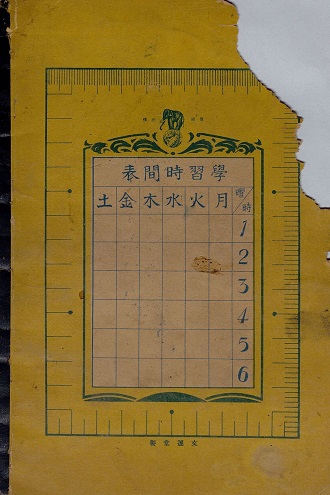 學習時間表
曜時 月 火 水 木 金 土
1
2
3
4
5
6
文運堂製